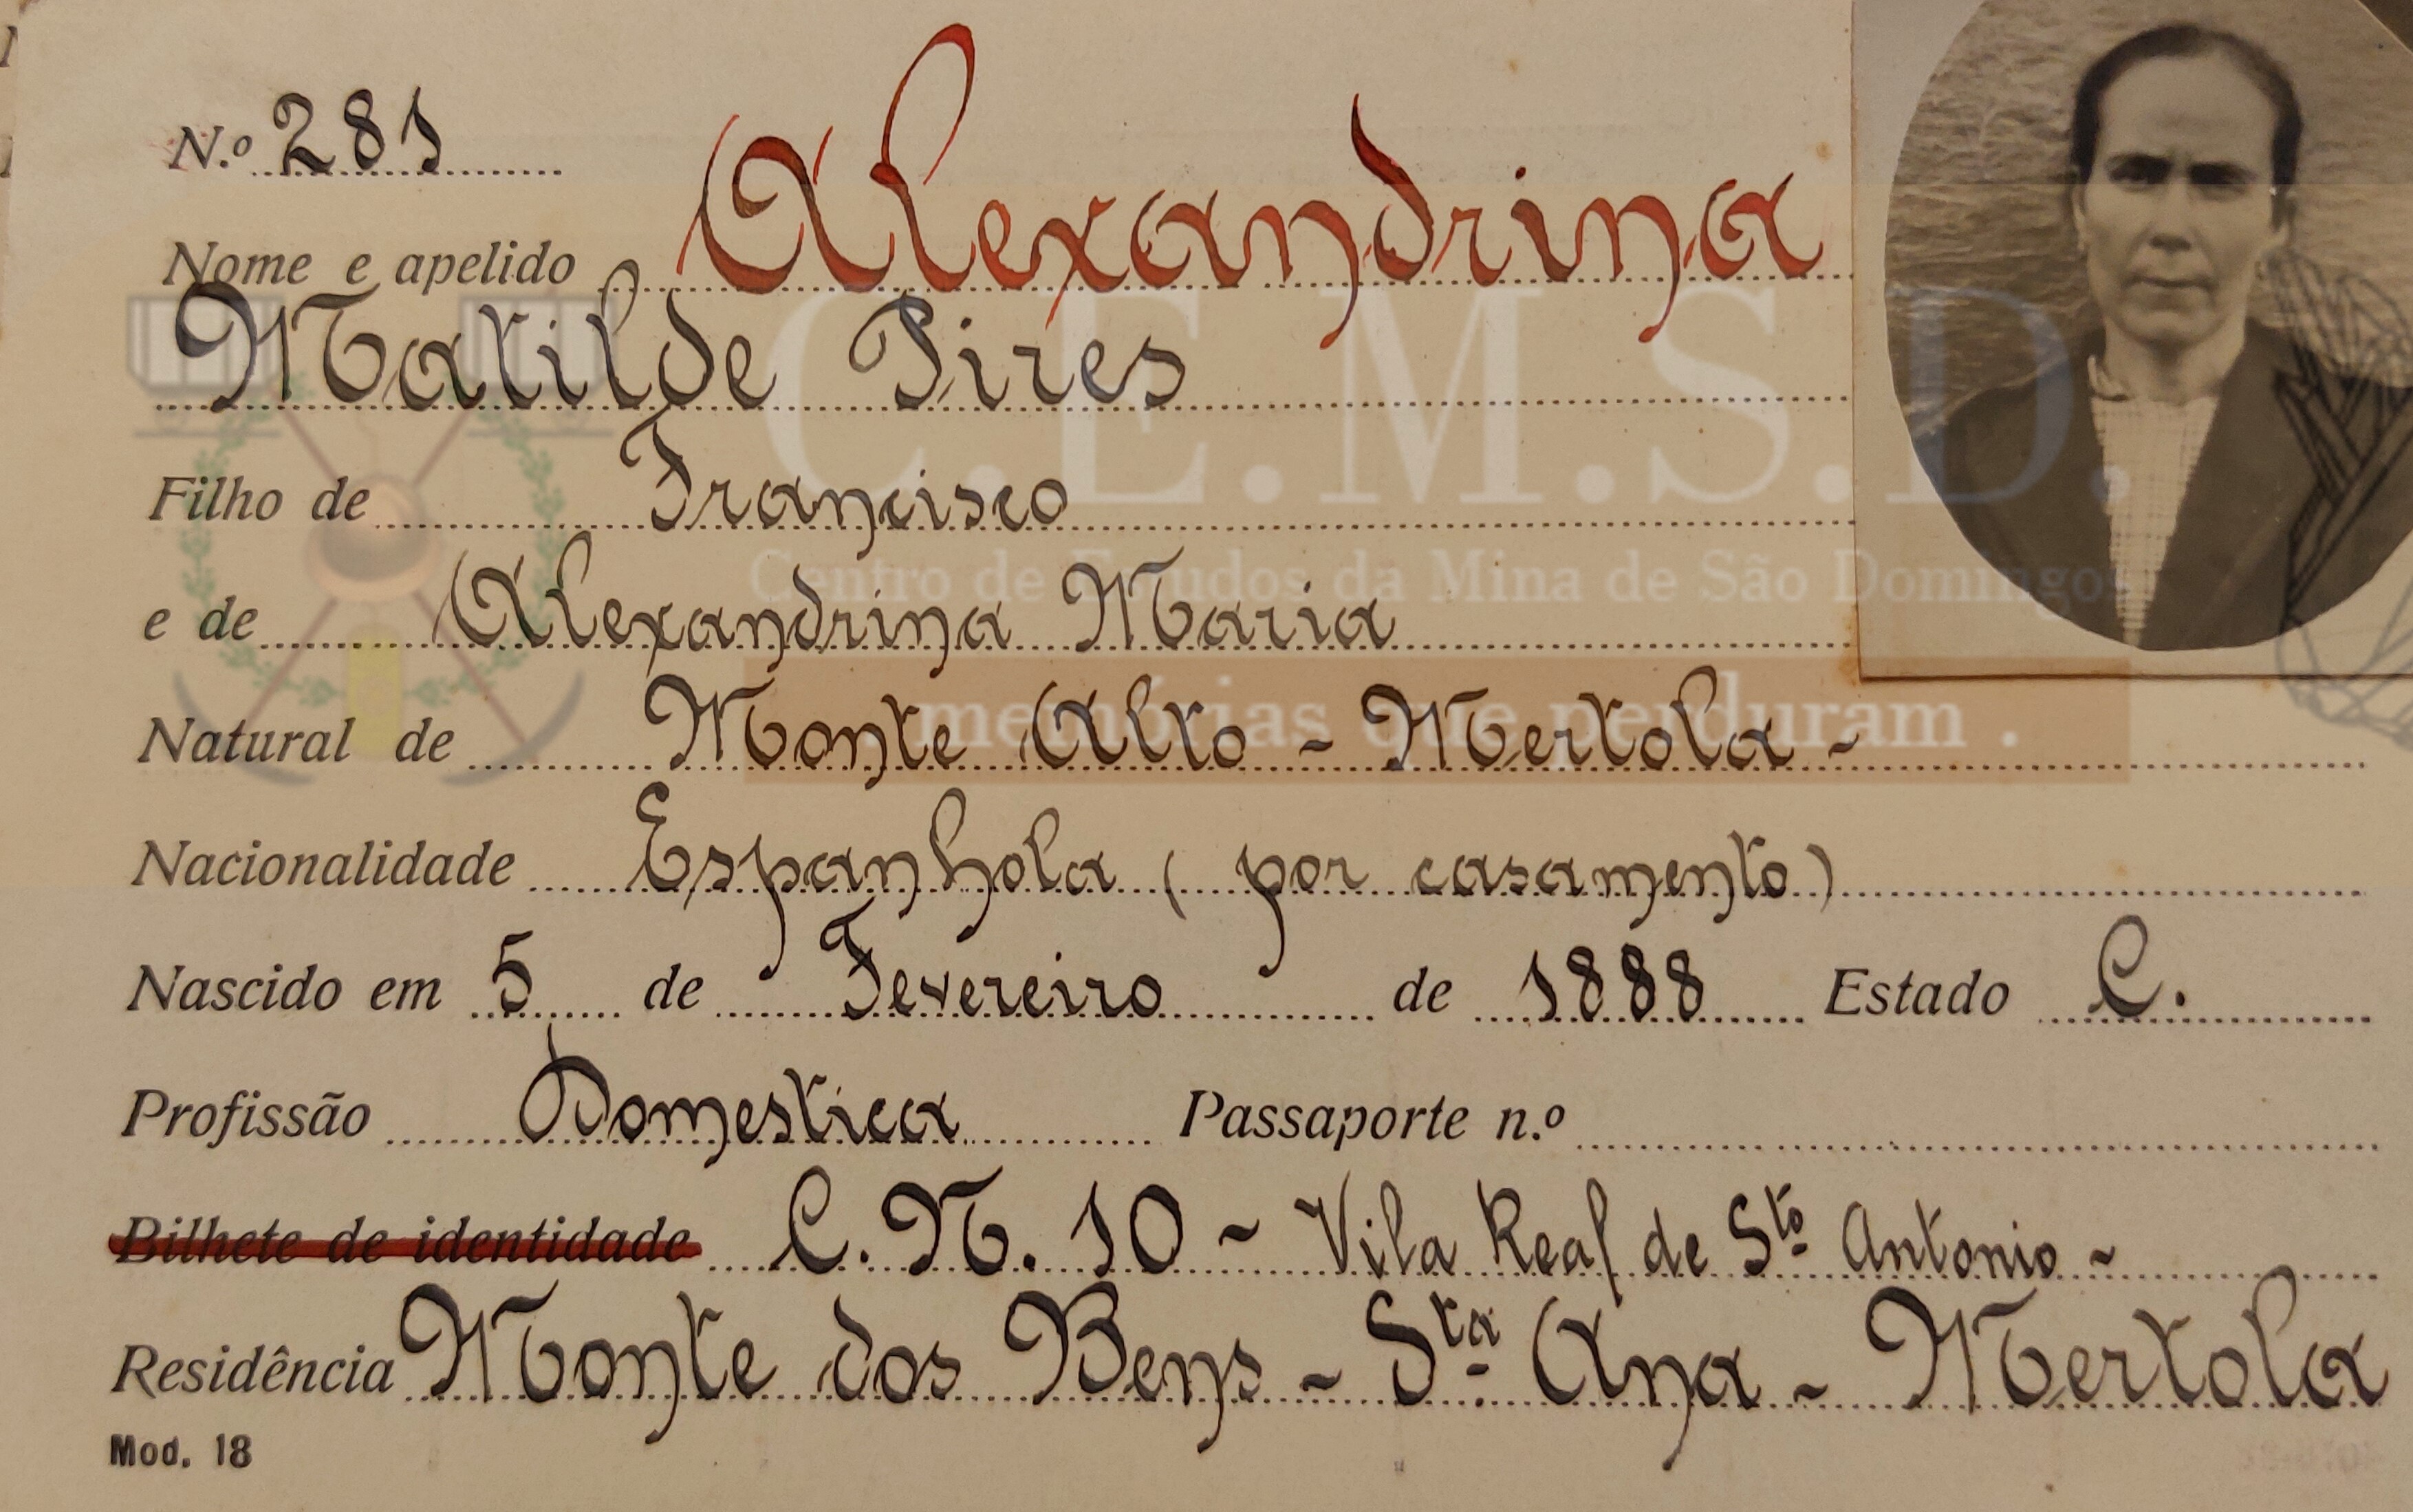 N.º 281
Nome e apelido Alexandrina
Matilde Pires
Filho de Francisco
e de Alexandrina Maria
Natural de Monte Alto - Mertola -
Nacionalidade Espanhola ( por casamento )
Nascido em 5 de Fevereiro de 1888 Estado C.
Profissão Domestica Passaporte n.º
Bilhete de identidade C. N. 10 - Vila Real de Sto Antonio -
Residência Monte dos Bens - Sta Ana - Mertola
Mod. 18
C.E.M.S.D.
Centro de Estudos da Mina de São Domingos
memórias que perduram .